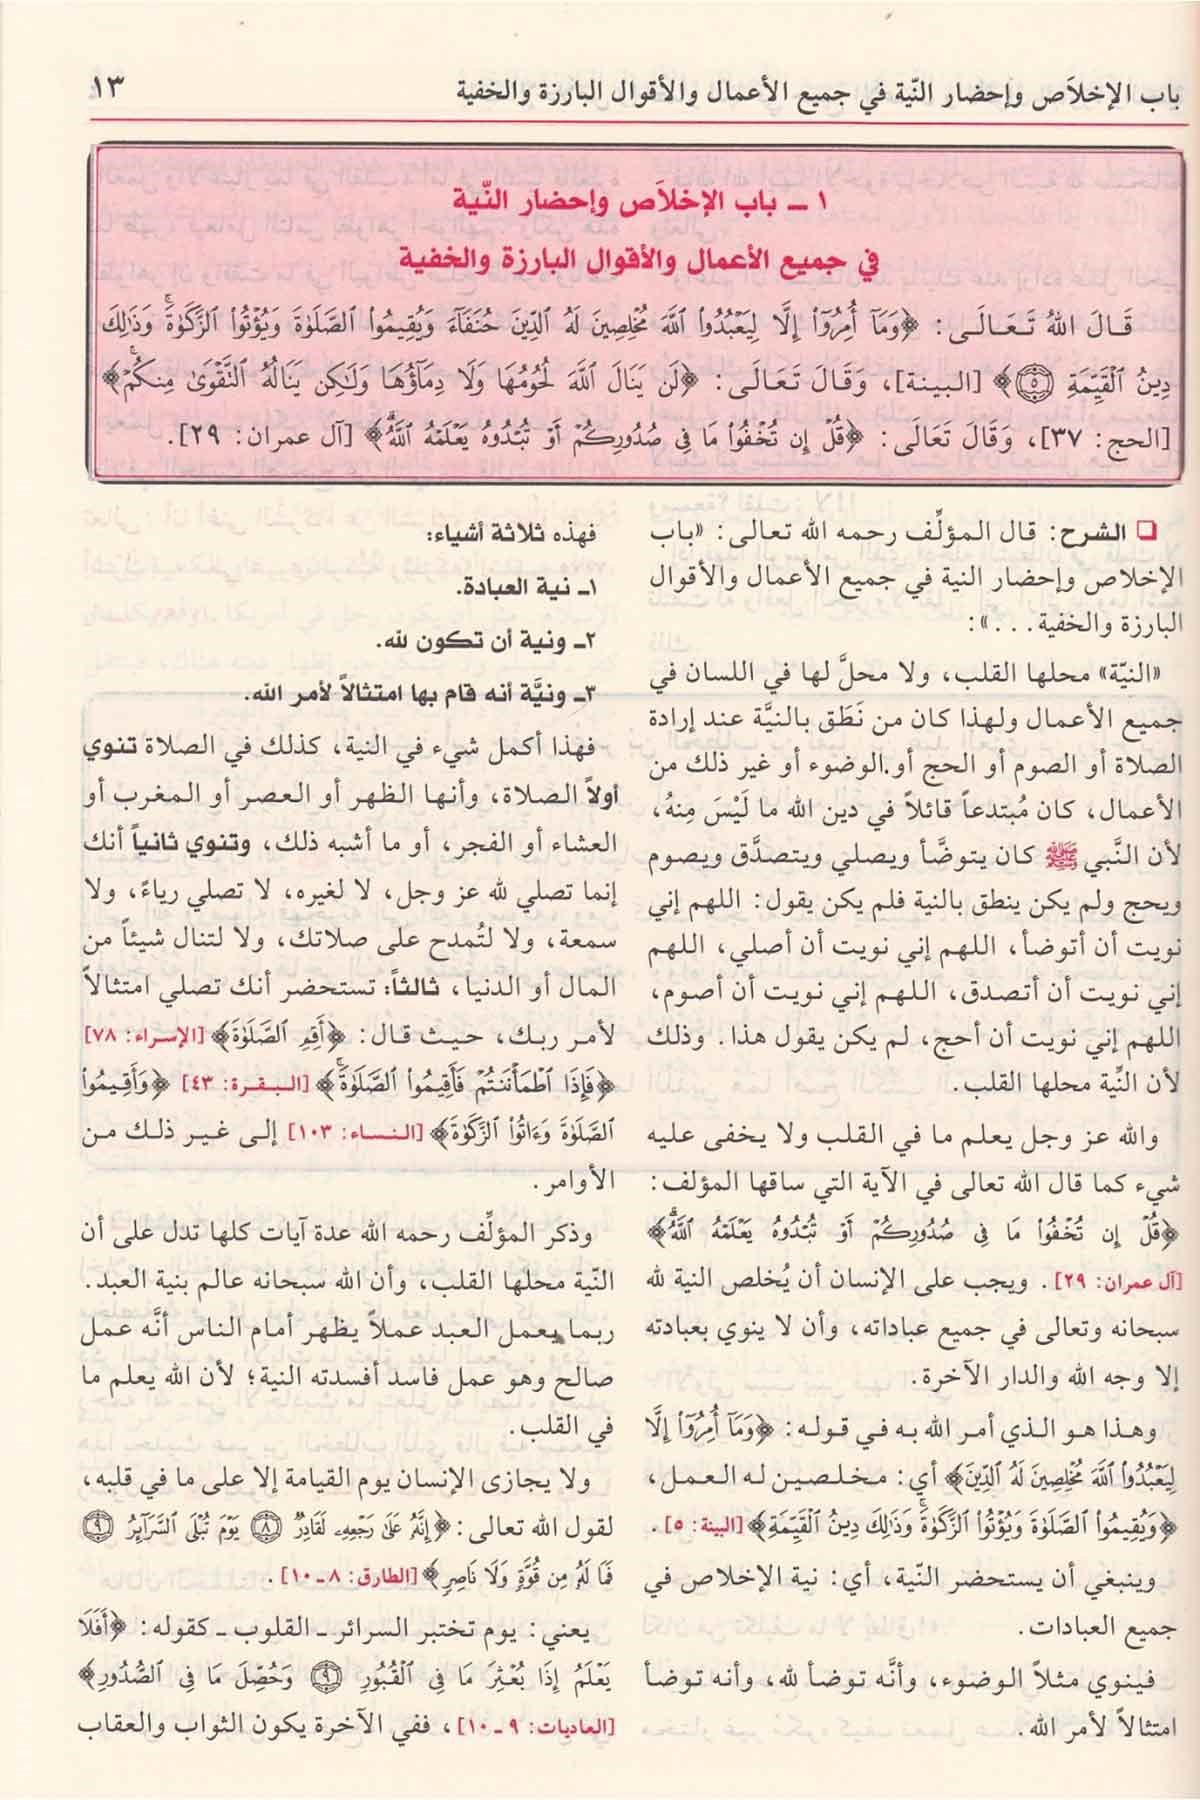 باب الإخلاَص وإحضار النّية في جميع الأعمال والأقوال البارزة والخفية
١٣
١ ـ باب الإخلاَص وإحضار النّية
في جميع الأعمال والأقوال البارزة والخفية
قَالَ اللهُ تَعَالَى: ﴿وَمَآ أُمِرُوٓا۟ إِلَّا لِيَعْبُدُوا۟ ٱللَّهَ مُخْلِصِينَ لَهُ ٱلدِّينَ حُنَفَآءَ وَيُقِيمُوا۟ ٱلصَّلَوٰةَ وَيُؤْتُوا۟ ٱلزَّكَوٰةَ ۚ وَذَٰلِكَ
دِينُ ٱلْقَيِّمَةِ ۝٥﴾ [البينة]، وَقَالَ تَعَالَى: ﴿لَن يَنَالَ ٱللَّهَ لُحُومُهَا وَلَا دِمَآؤُهَا وَلَٰكِن يَنَالُهُ ٱلتَّقْوَىٰ مِنكُمْ ۚ﴾
[الحج: ٣٧]، وَقَالَ تَعَالَى: ﴿قُلْ إِن تُخْفُوا۟ مَا فِى صُدُورِكُمْ أَوْ تُبْدُوهُ يَعْلَمْهُ ٱللَّهُ ۗ﴾ [آل عمران: ٢٩].
❑ الشرح: قال المؤلِّف رحمه الله تعالى: «باب
الإخلاص وإحضار النية في جميع الأعمال والأقوال
البارزة والخفية...»:
«النيّة» محلها القلب، ولا محلَّ لها في اللسان في
جميع الأعمال ولهذا كان من نَطَق بالنيَّة عند إرادة
الصلاة أو الصوم أو الحج أو الوضوء أو غير ذلك من
الأعمال، كان مُبتدعاً قائلاً في دين الله ما لَيْسَ مِنهُ،
لأن النَّبي ﷺ كان يتوضَّأ ويصلي ويتصدَّق ويصوم
ويحج ولم يكن ينطق بالنية فلم يكن يقول: اللهم إني
نويت أن أتوضأ، اللهم إني نويت أن أصلي، اللهم
إني نويت أن أتصدق، اللهم إني نويت أن أصوم،
اللهم إني نويت أن أحج، لم يكن يقول هذا. وذلك
لأن النِّية محلها القلب.
والله عز وجل يعلم ما في القلب ولا يخفى عليه
شيء كما قال الله تعالى في الآية التي ساقها المؤلف:
﴿قُلْ إِن تُخْفُوا۟ مَا فِى صُدُورِكُمْ أَوْ تُبْدُوهُ يَعْلَمْهُ ٱللَّهُ ۗ﴾
[آل عمران: ٢٩]. ويجب على الإنسان أن يُخلص النية لله
سبحانه وتعالى في جميع عباداته، وأن لا ينوي بعبادته
إلا وجه الله والدار الآخرة.
وهذا هو الذي أمر الله به في قوله: ﴿وَمَآ أُمِرُوٓا۟ إِلَّا
لِيَعْبُدُوا۟ ٱللَّهَ مُخْلِصِينَ لَهُ ٱلدِّينَ﴾ أي: مخلصين له العمل،
﴿وَيُقِيمُوا۟ ٱلصَّلَوٰةَ وَيُؤْتُوا۟ ٱلزَّكَوٰةَ ۚ وَذَٰلِكَ دِينُ ٱلْقَيِّمَةِ﴾ [البينة: ٥].
وينبغي أن يستحضر النّية، أي: نية الإخلاص في
جميع العبادات.
فينوي مثلاً الوضوء، وأنَّه توضأ لله، وأنه توضأ
امتثالاً لأمر الله.
فهذه ثلاثة أشياء:
١ـ نية العبادة.
٢ـ ونية أن تكون لله.
٣ـ ونيَّة أنه قام بها امتثالاً لأمر الله.
فهذا أكمل شيء في النية، كذلك في الصلاة تنوي
أولاً الصلاة، وأنها الظهر أو العصر أو المغرب أو
العشاء أو الفجر، أو ما أشبه ذلك، وتنوي ثانياً أنك
إنما تصلي لله عز وجل، لا لغيره، لا تصلي رياءً، ولا
سمعة، ولا لتُمدح على صلاتك، ولا لتنال شيئاً من
المال أو الدنيا، ثالثاً: تستحضر أنك تصلي امتثالاً
لأمر ربك، حيث قال: ﴿أَقِمِ ٱلصَّلَوٰةَ﴾ [الإسراء: ٧٨]
﴿فَإِذَا ٱطْمَأْنَنتُمْ فَأَقِيمُوا۟ ٱلصَّلَوٰةَ ۚ﴾ [البقرة: ٤٣] ﴿وَأَقِيمُوا۟
ٱلصَّلَوٰةَ وَءَاتُوا۟ ٱلزَّكَوٰةَ﴾ [النساء: ١٠٣] إلى غير ذلك من
الأوامر.
وذكر المؤلِّف رحمه الله عدة آيات كلها تدل على أن
النّية محلها القلب، وأن الله سبحانه عالم بنية العبد.
ربما يعمل العبد عملاً يظهر أمام الناس أنَّه عمل
صالح وهو عمل فاسد أفسدته النية؛ لأن الله يعلم ما
في القلب.
ولا يجازى الإنسان يوم القيامة إلا على ما في قلبه،
لقول الله تعالى: ﴿إِنَّهُۥ عَلَىٰ رَجْعِهِۦ لَقَادِرٌ ۝٨ يَوْمَ تُبْلَى ٱلسَّرَآئِرُ ۝٩
فَمَا لَهُۥ مِن قُوَّةٍ وَلَا نَاصِرٍ﴾ [الطارق: ٨ـ١٠].
يعني: يوم تختبر السرائر ـ القلوب ـ كقوله: ﴿أَفَلَا
يَعْلَمُ إِذَا بُعْثِرَ مَا فِى ٱلْقُبُورِ ۝٩ وَحُصِّلَ مَا فِى ٱلصُّدُورِ﴾
[العاديات: ٩ـ١٠]، ففي الآخرة يكون الثواب والعقاب